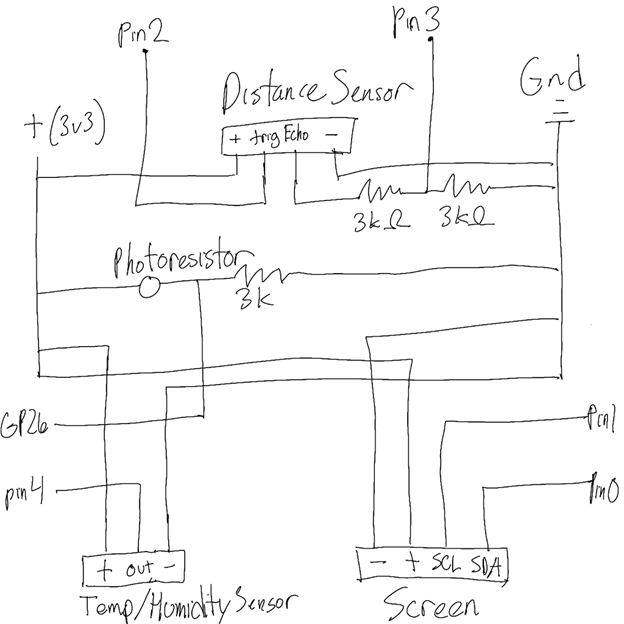 Pin2
Pin3
Gnd
Distance Sensor
+ (3v3)
+ trig Echo -
3kΩ 3kΩ
Photoresistor
3k
GP26
Pin1
pin4
Pin0
+ out -
- + SCL SDA
Temp/Humidity Sensor
Screen